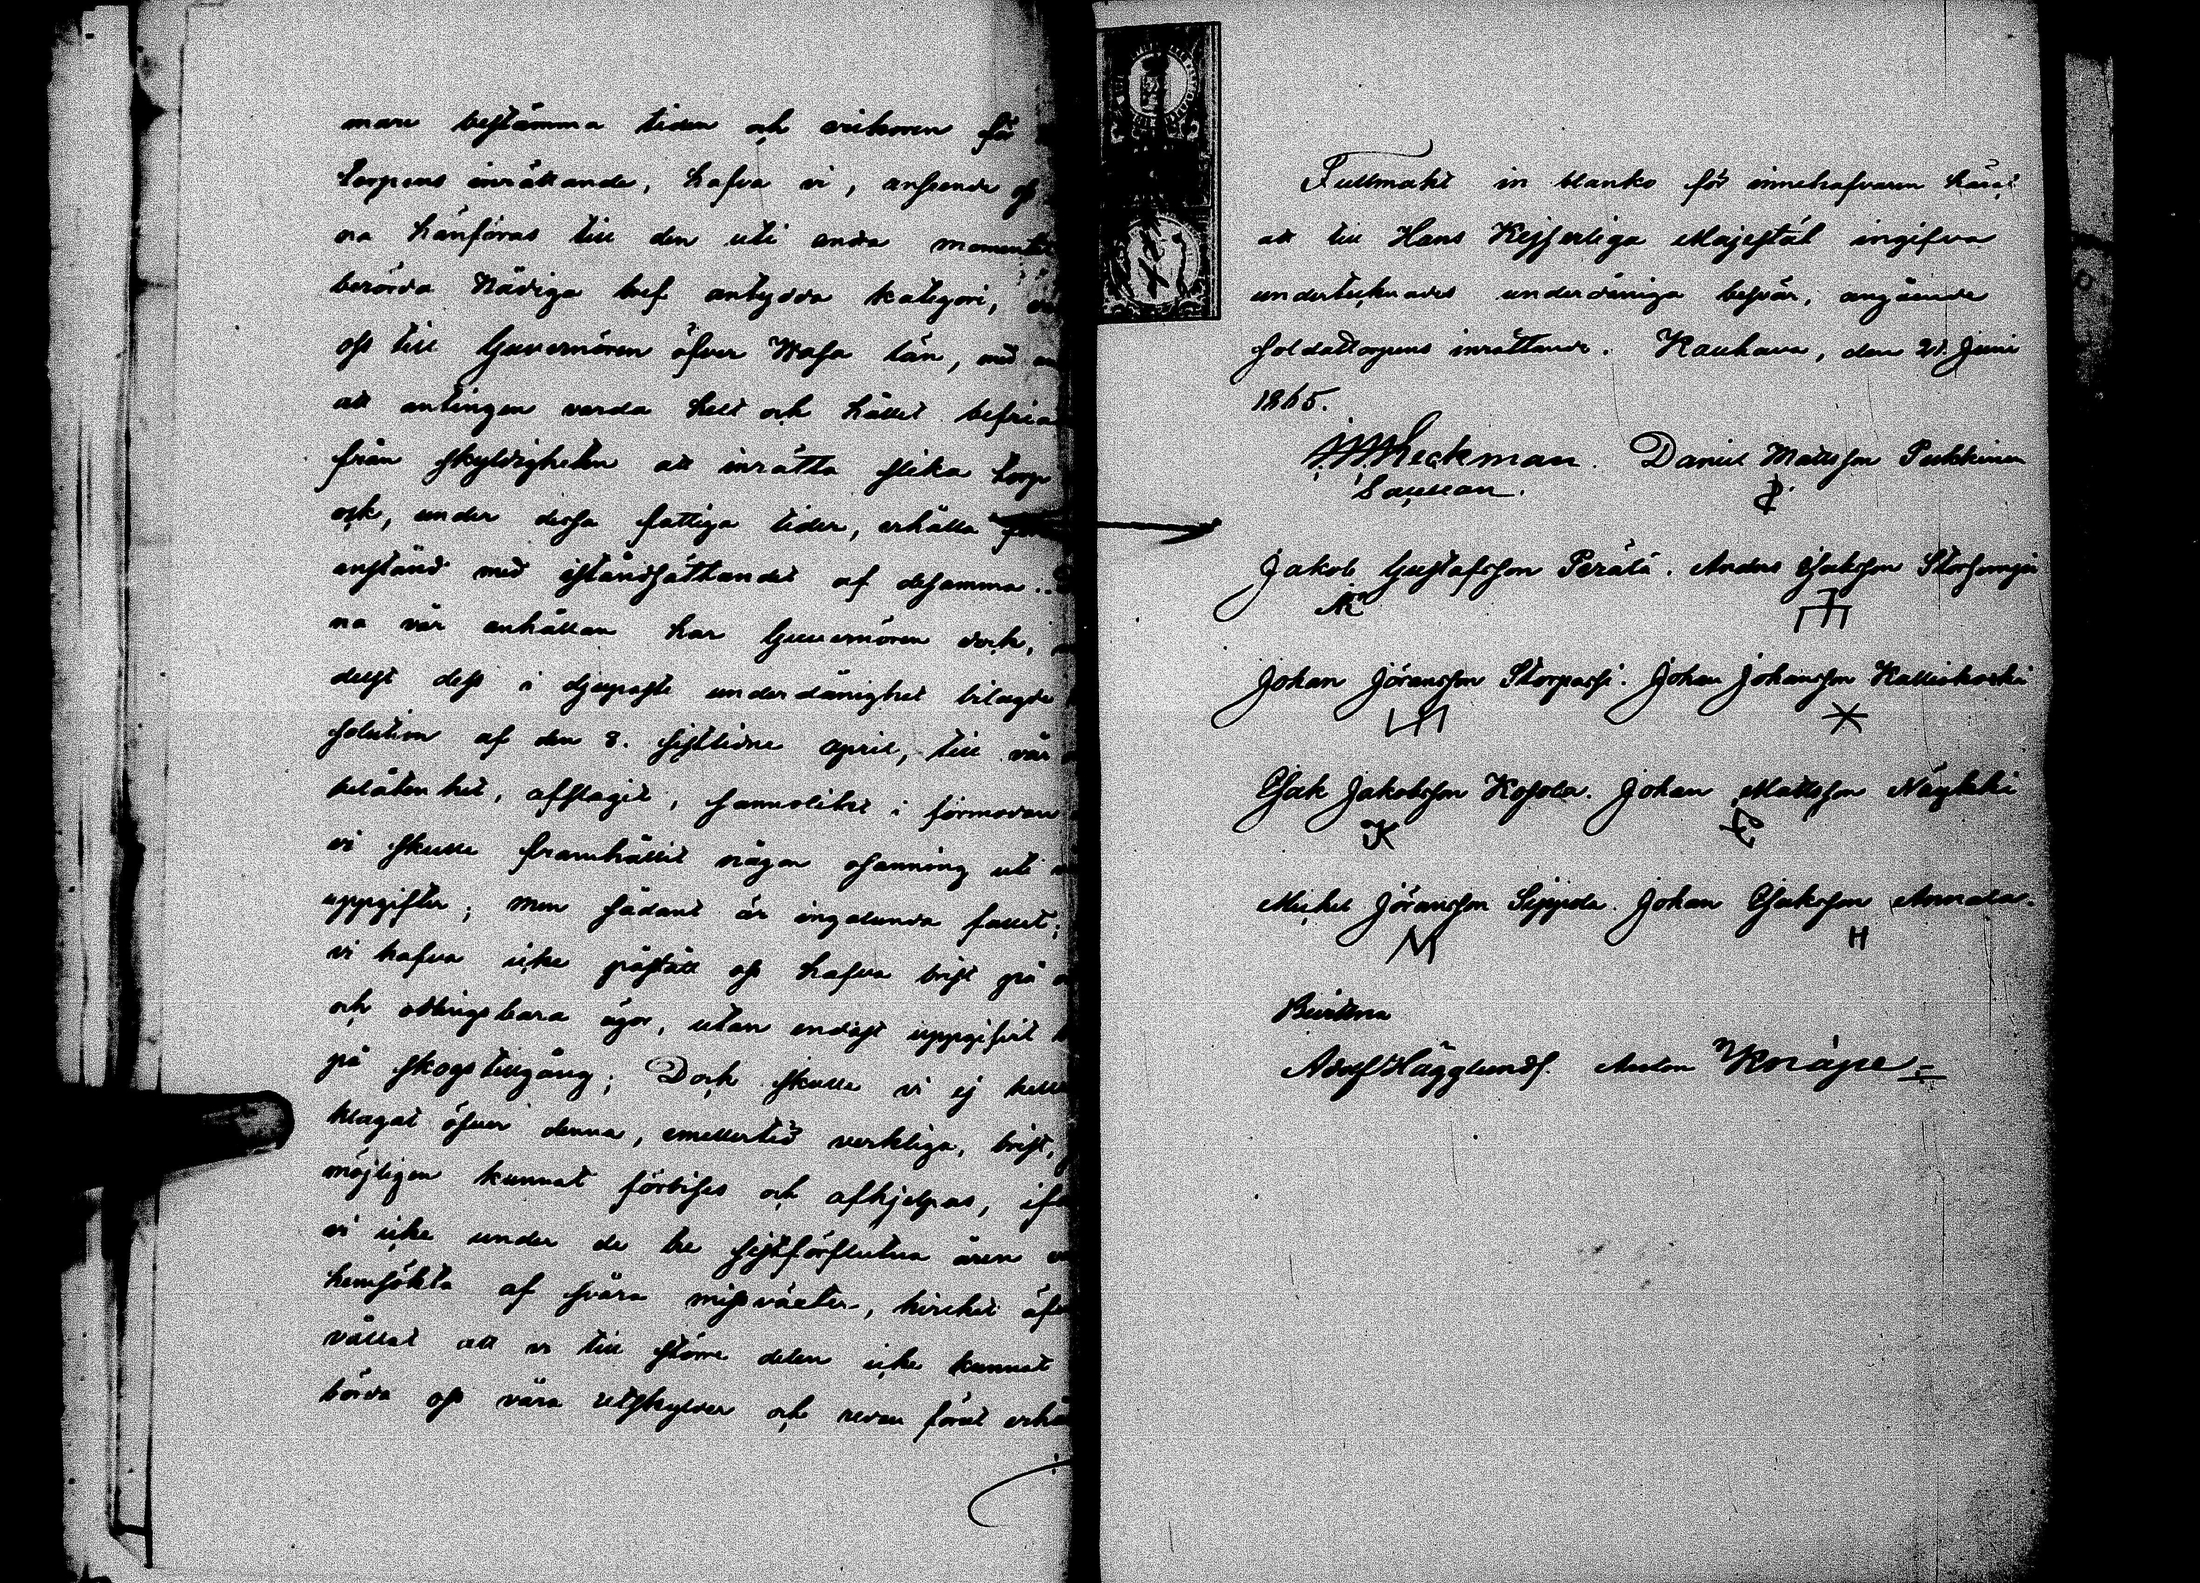 mare bestämma tiden och vilkoren för
torpens inrättande, hafva vi, anseende oss
na hänföras till den uti andra momentet
berörda Nådiga bref antydda kategori,
oss till Guvernören öfver Wasa län, med
att antingen varda helt och hållet befria
från skyldigheten att inrätta slika torp
ock, under dessa fattiga tider, erhålla
anstånd med iståndsättandet af desamma.
na vår anhållan har Guvernören dock,
delst dess i djupaste underdånighet bilagde
solution af den 8. sistlidne april, till vår
belåtenhet, afslagit, sannolikt i förmodan
vi skulle framhållit någon osanning uti
uppgifter; men sådant är ingalunda fallet;
vi hafva icke påstått oss hafva brist på
och odlingsbara ägor, utan endast uppgifvit
på skogstillgång; Dock skulle vi ej heller
klagat öfver denna, emellertid verkliga, brist,
möjligen kunnat förbises och afhjelpas, ifall
vi icke under de tre sistförflutna åren
hemsökta af svåra missväxter, hvilket
vållat att vi till större delen icke kunnat
börda oss våra utskylder och redan förut
Fullmakt in blanko för innehafvaren häraf
att till Hans Kejserliga Majestät ingifva
undertecknades underdåniga besvär, angående
soldattorpens inrättande. Kauhava, den 21. Juni
1865.
Heckman. Daniel Mattsson Pukkinen
Jakob Gustafsson Perälä. Anders Isaksson
Johan Jöransson Storpassi. Johan Johansson Kalliokoski
Isak Jakobsson Kosola. Johan Mattsson
K
Michel Jöransson Sippola. Johan Isaksson Annala.
M H
Bevittna
Adolf Hägglund. Anton Knape.